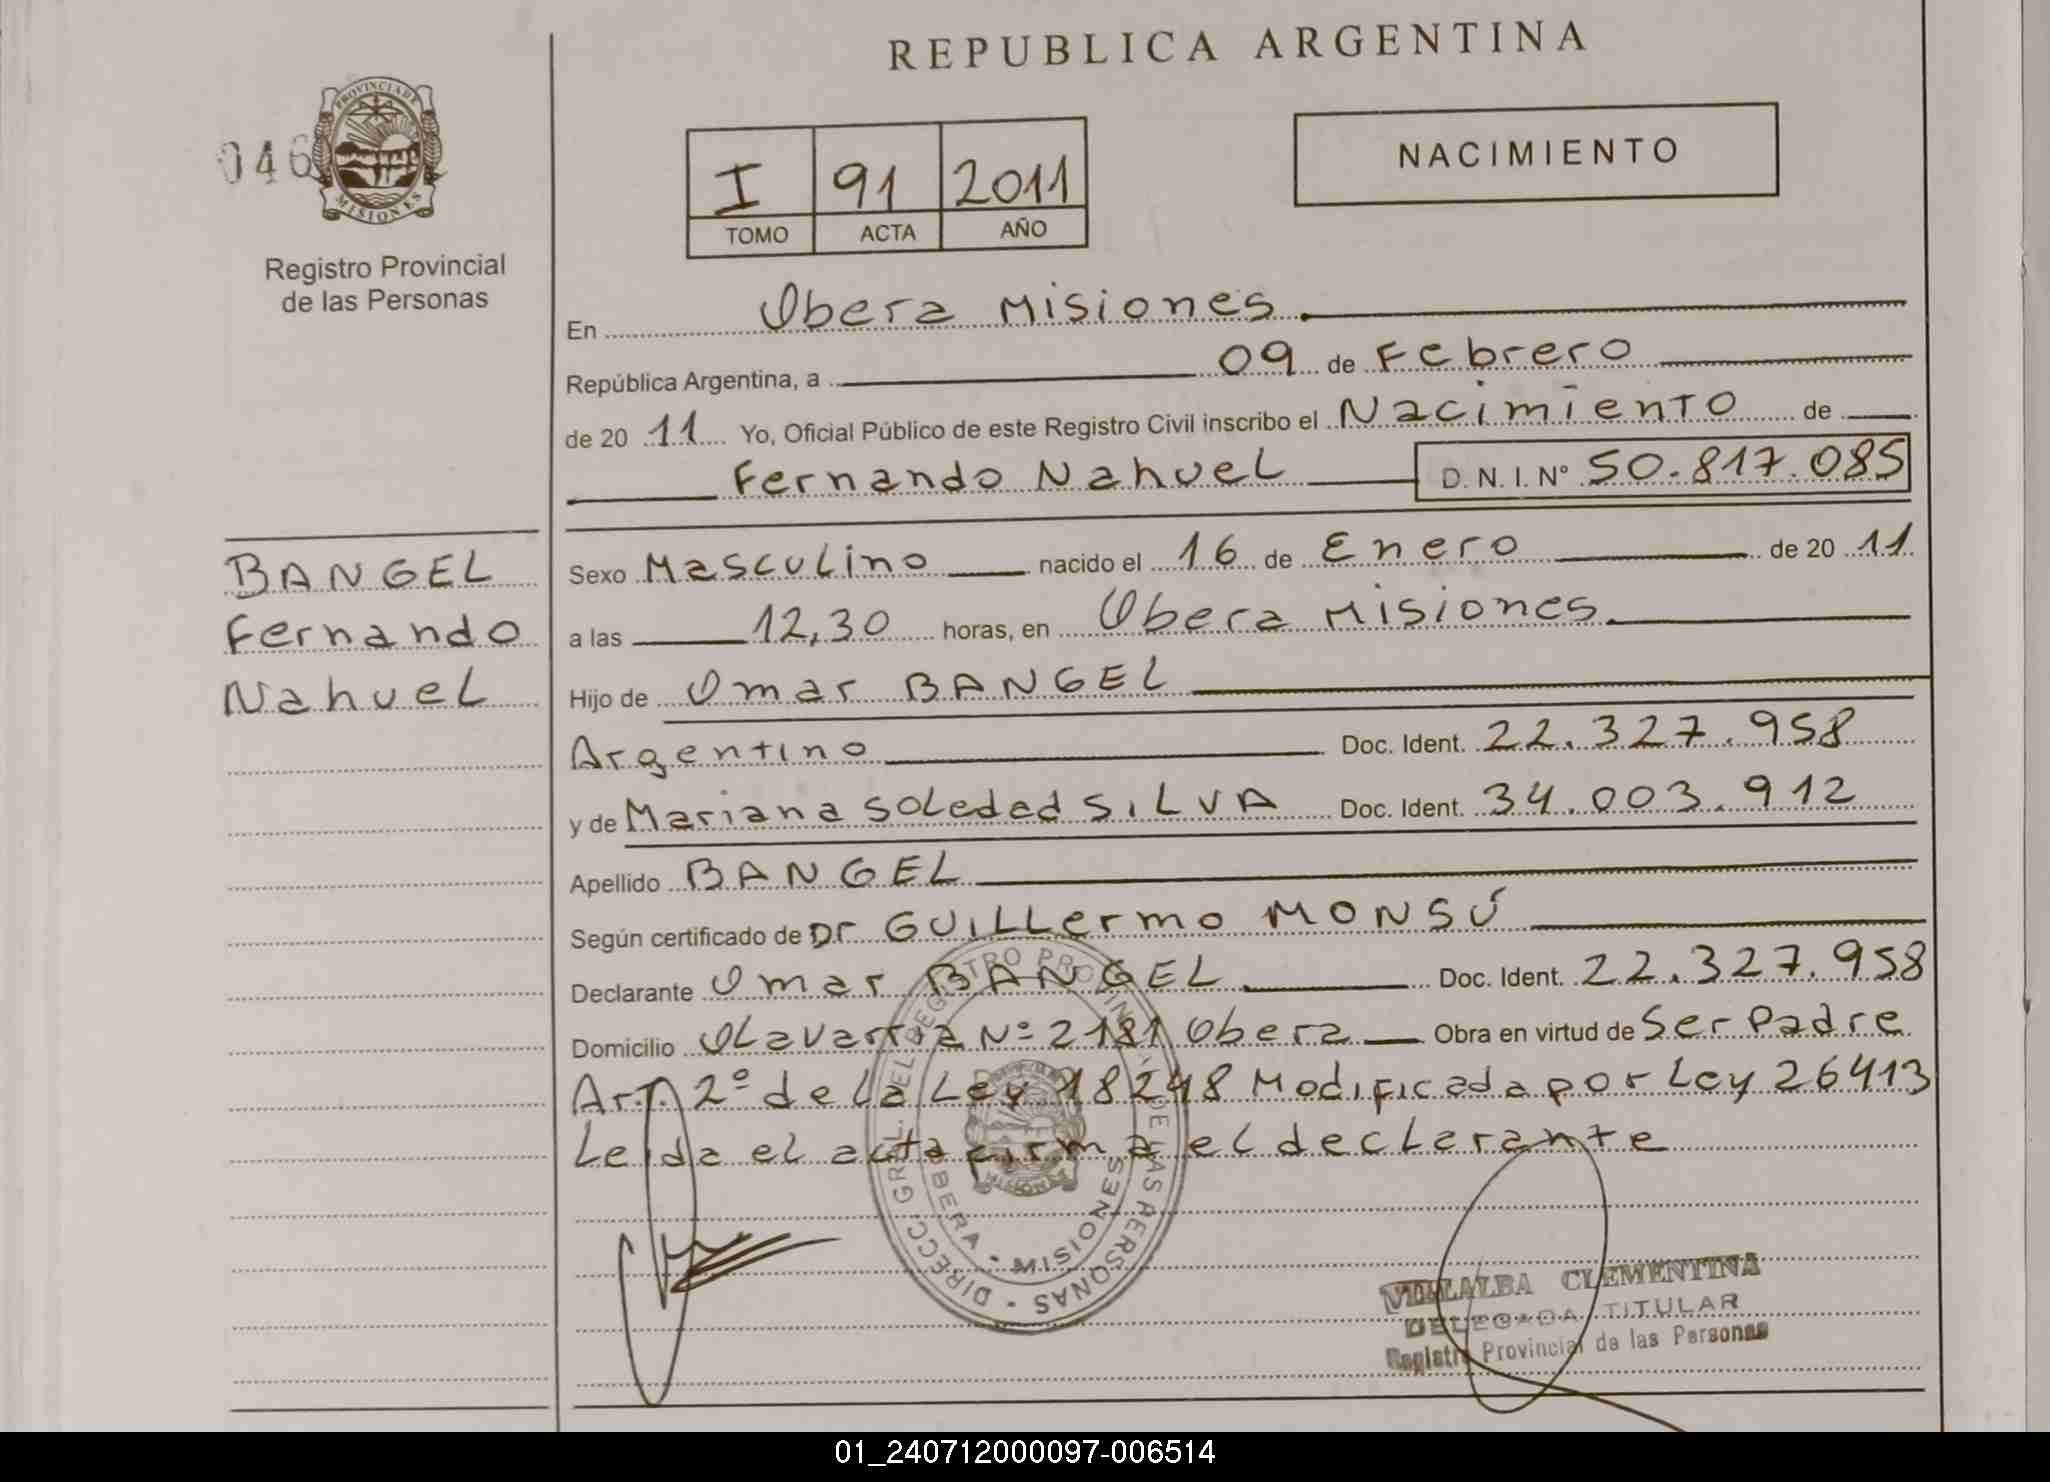 REPUBLICA ARGENTINA
PROVINCIA DE
MISIONES
046
Registro Provincial
de las Personas
I 91 2011
TOMO ACTA AÑO
NACIMIENTO
En Obera Misiones
República Argentina, a 09 de Febrero
de 20 11 Yo, Oficial Público de este Registro Civil inscribo el Nacimiento de
Fernando Nahuel D.N.I. Nº 50.817.085
BANGEL
Fernando
Nahuel
Sexo Masculino nacido el 16 de Enero de 20 11
a las 12,30 horas, en Obera Misiones
Hijo de Omar BANGEL
Argentino Doc. Ident. 22.327.958
y de Mariana Soledad SILVA Doc. Ident. 34.003.912
Apellido BANGEL
Según certificado de Dr GUILLermo MONSÚ
Declarante Omar BANGEL Doc. Ident. 22.327.958
Domicilio Olavarria Nº 2181 Obera Obra en virtud de Ser Padre
Art. 2º de la Ley 18248 Modificada por Ley 26413
Leida el acta firma el declarante
DIRECC. GRAL. DEL REGISTRO PROVINCIAL DE LAS PERSONAS
OBERA - MISIONES
VILLALBA CLEMENTINA
DELEGADA TITULAR
Registro Provincial de las Personas
01_240712000097-006514